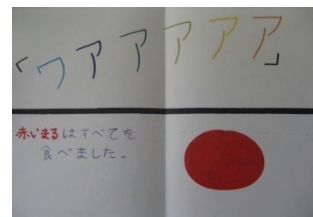 「ワアアアアア」
赤いまるはすべてを
食べました。